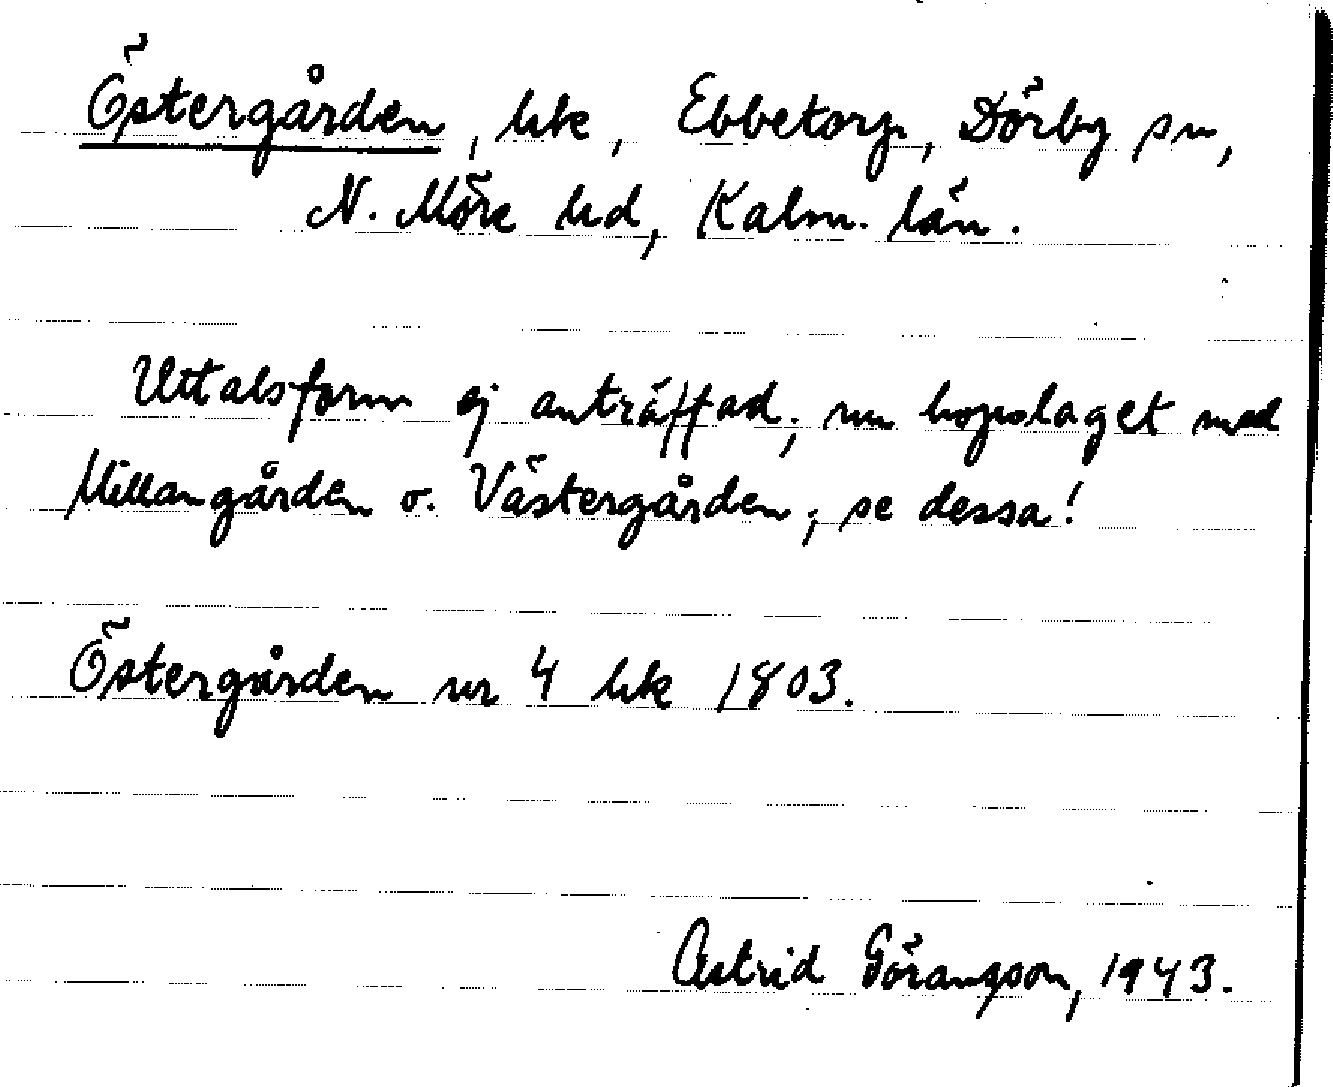 Östergården, hk, Ebbetorp, Dörby sn,
N. Möre hd, Kalm. län.
Uttalsform ej anträffad; nu hopslaget med
Mellangården o. Västergården; se dessa!
Östergården nr 4 hk 1803.
Astrid Göransson, 1943.